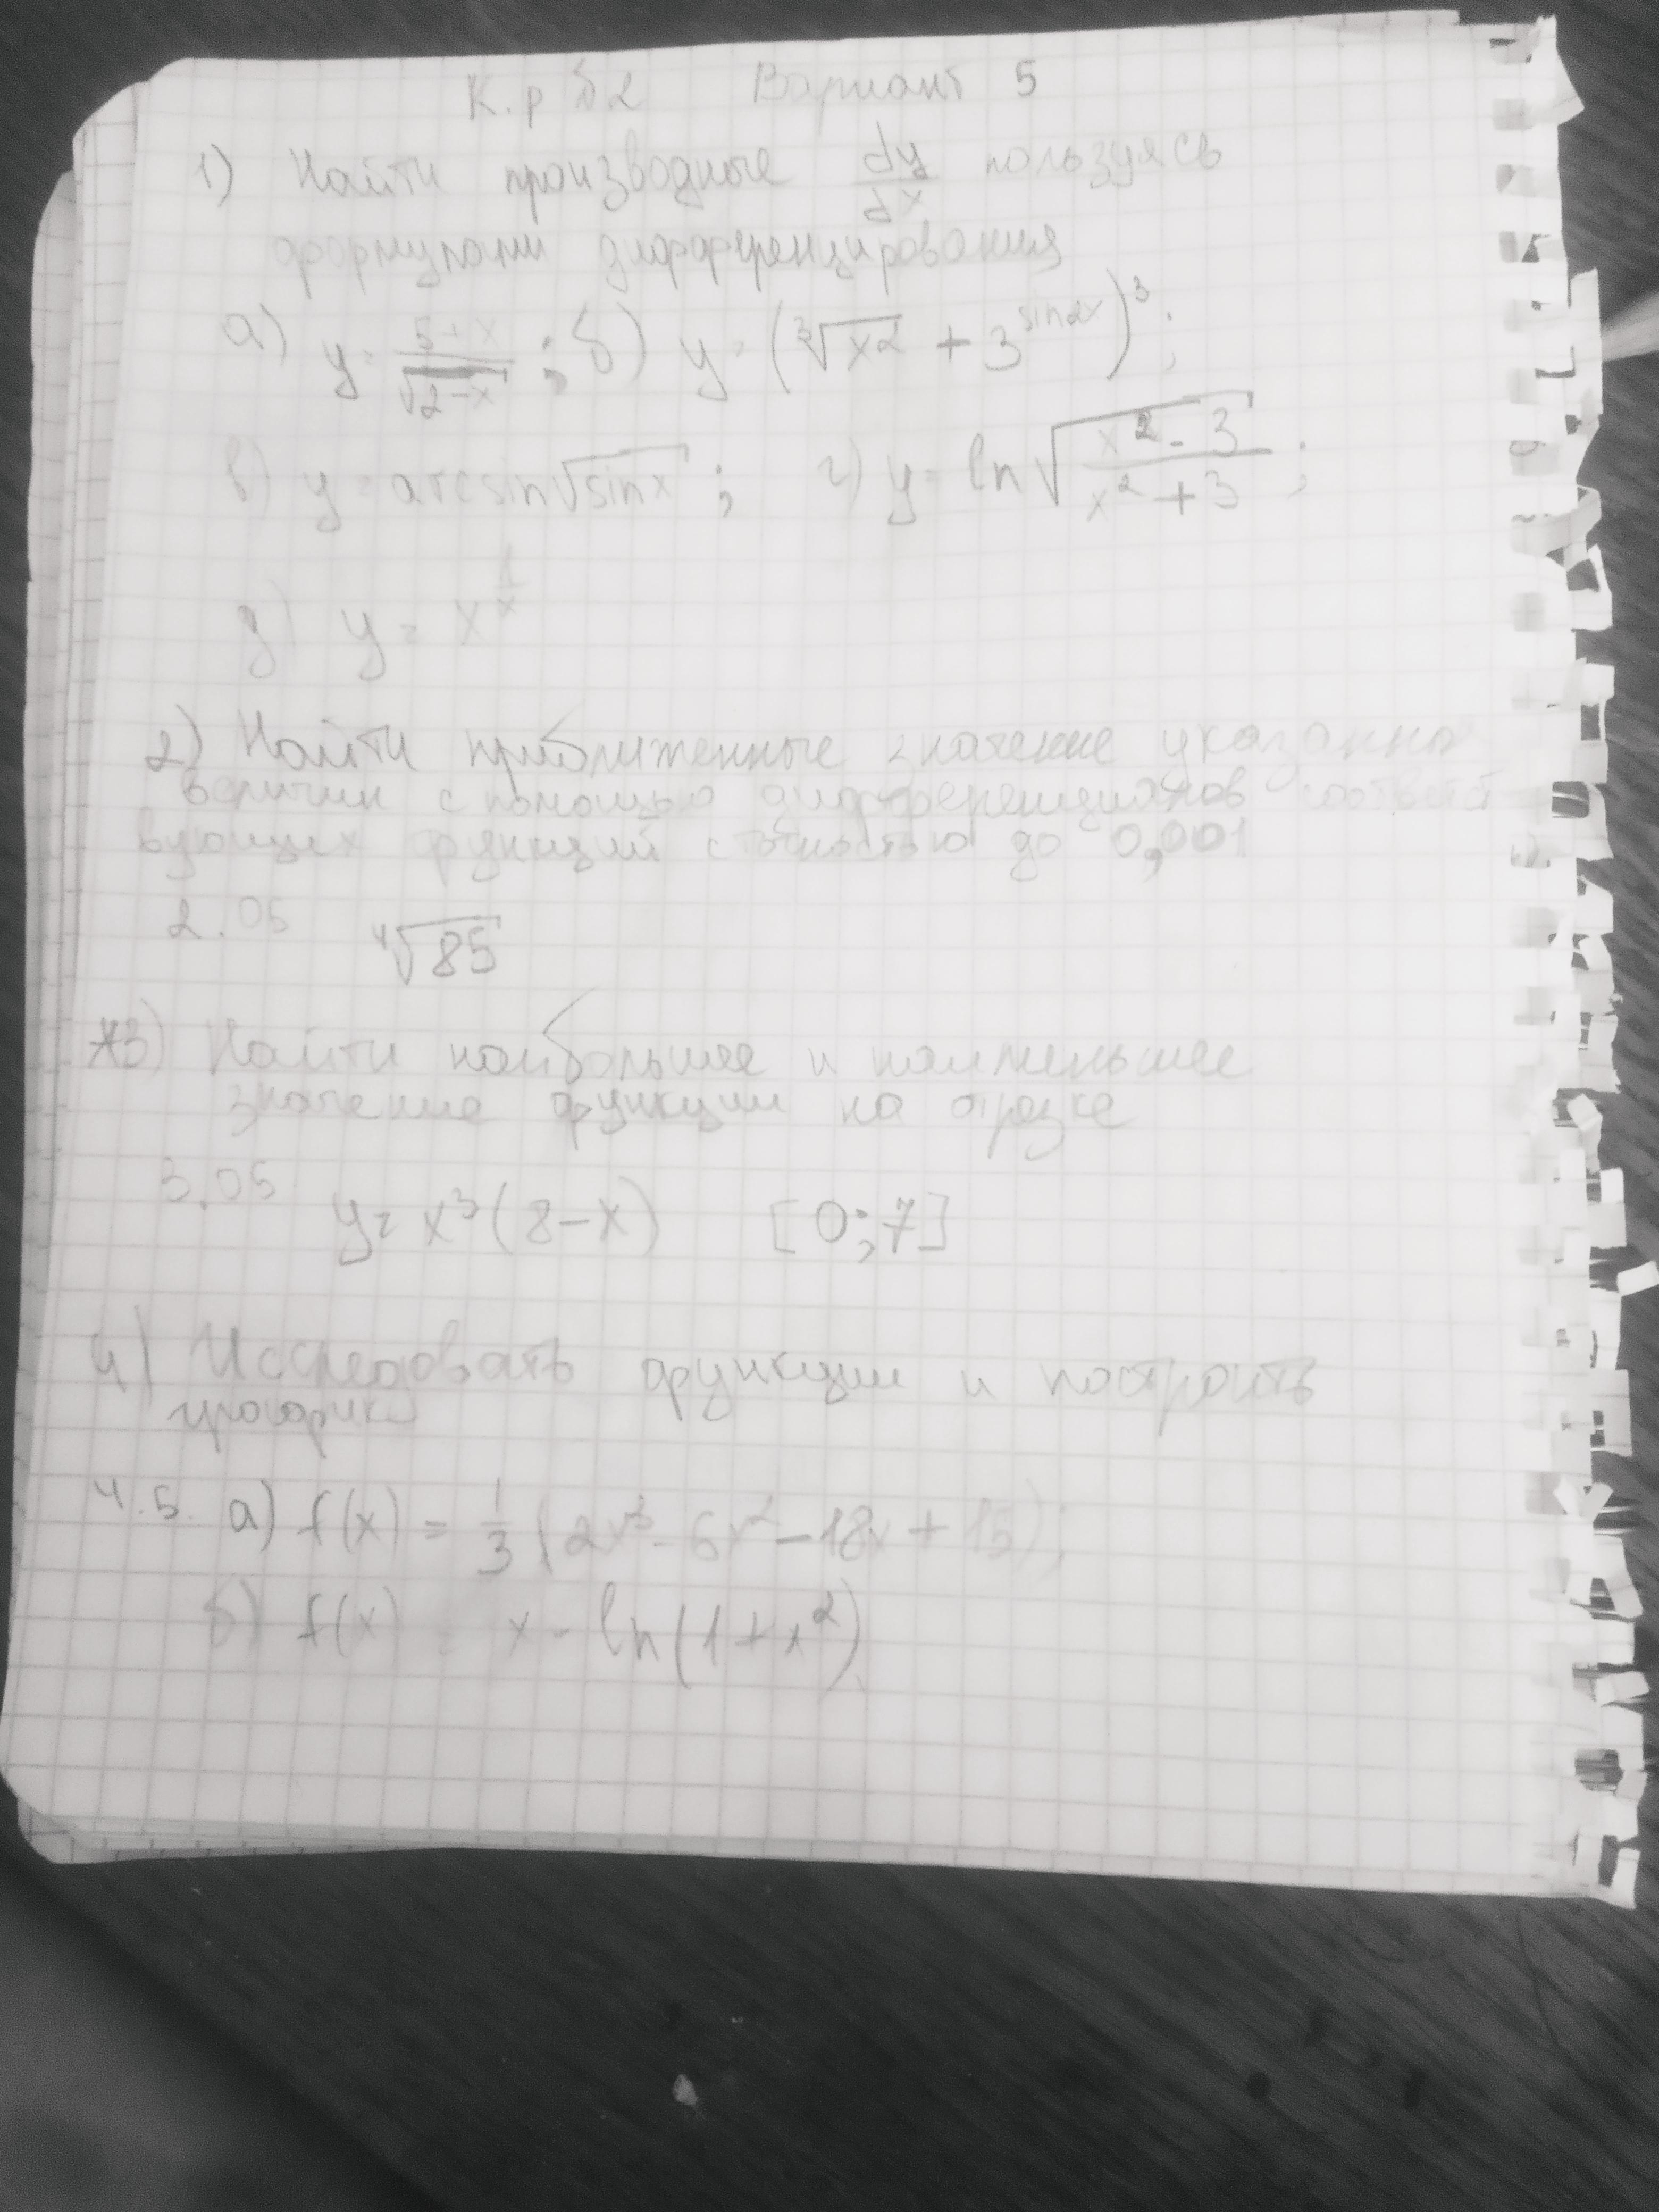 К.р №2 Вариант 5
1) Найти производные dy/dx пользуясь
формулами дифференцирования
а) y = (5+x)/√(2-x) ; б) y = (∛x² + 3^sin2x)³ ;
в) y = arcsin√sinx ; г) y = ln√((x²-3)/(x²+3)) ;
д) y = x^(1/x)
2) Найти приближенные значение
величин с помощью дифференциалов соответст
вующих функций с точностью до 0,001
2.05 ⁴√85
*3) Найти наибольшее и наименьшее
значение функции на отрезке
3.05 y = x³(8-x) [0;7]
4) Исследовать функции и построить
графики
4.5. а) f(x) = 1/3 (2x³-6x²-18x+15);
б) f(x) = x - ln(1+x²)